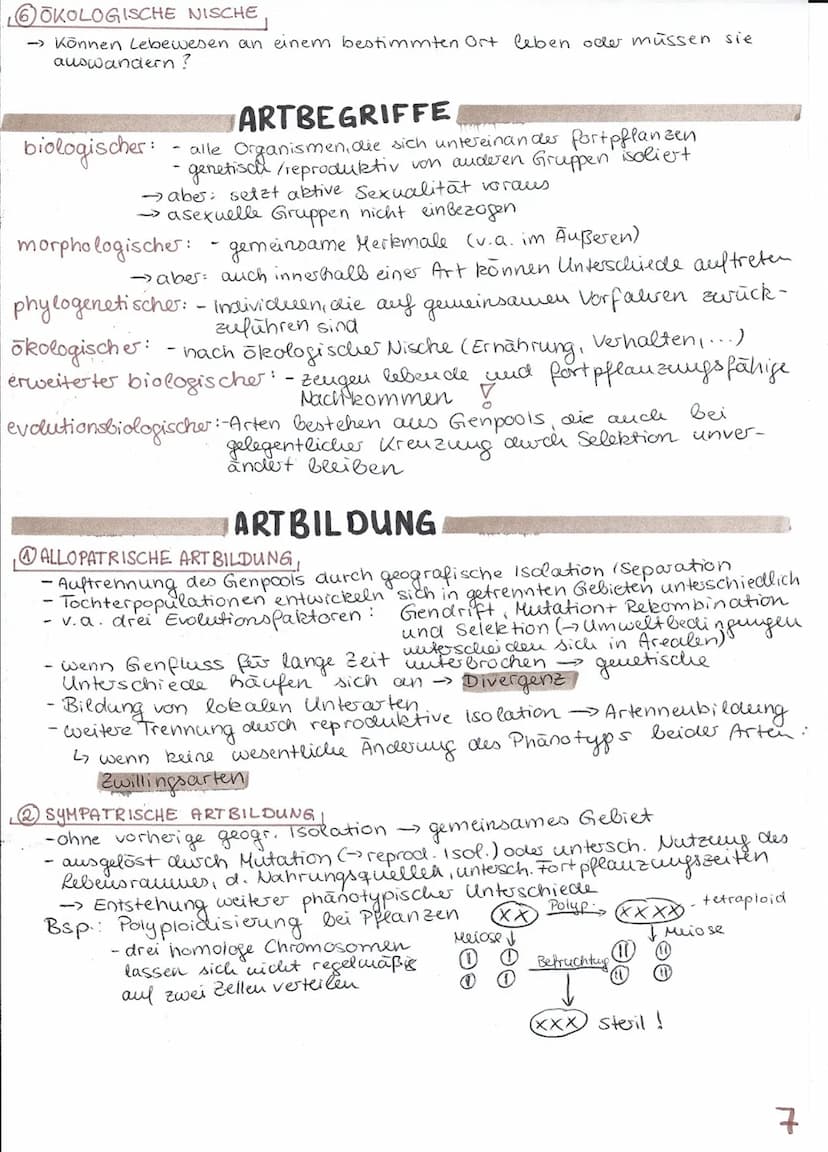 ⑥ ÖKOLOGISCHE NISCHE
→ Können Lebewesen an einem bestimmten Ort leben oder müssen sie
auswandern?
ARTBEGRIFFE
biologischer: - alle Organismen, die sich untereinander fortpflanzen
- genetisch/reproduktiv von anderen Gruppen isoliert
→ aber: setzt aktive Sexualität voraus
→ asexuelle Gruppen nicht einbezogen
morphologischer: - gemeinsame Merkmale (v.a. im Äußeren)
→ aber: auch innerhalb einer Art können Unterschiede auftreten
phylogenetischer: - Individuen, die auf gemeinsamen Vorfahren zurück-
zuführen sind
ökologischer: - nach ökologischer Nische (Ernährung, Verhalten, ...)
erweiterter biologischer: - zeugen lebende und fortpflanzungsfähige
Nachkommen !
evolutionsbiologischer: - Arten bestehen aus Genpools, die auch bei
gelegentlicher Kreuzung durch Selektion unver-
ändert bleiben
ARTBILDUNG
① ALLOPATRISCHE ARTBILDUNG
- Auftrennung des Genpools durch geografische Isolation/Separation
- Tochterpopulationen entwickeln sich in getrennten Gebieten unterschiedlich
- v.a. drei Evolutionsfaktoren: Gendrift, Mutation + Rekombination
und Selektion (→ Umweltbedingungen
unterscheiden sich in Arealen)
- wenn Genfluss für lange Zeit unterbrochen → genetische
Unterschiede häufen sich an → Divergenz
- Bildung von lokalen Unterarten
- weitere Trennung durch reproduktive Isolation → Artenneubildung
↳ wenn keine wesentliche Änderung des Phänotyps beider Arten:
Zwillingsarten
② SYMPATRISCHE ARTBILDUNG
- ohne vorherige geogr. Isolation → gemeinsames Gebiet
- ausgelöst durch Mutation (→ reprod. Isol.) oder untersch. Nutzung des
Lebensraumes, d. Nahrungsquellen, untersch. Fortpflanzungszeiten
→ Entstehung weiterer phänotypischer Unterschiede
Bsp.: Polyploidisierung bei Pflanzen XX Polyp. → XXXX - tetraploid
- drei homologe Chromosomen Meiose ↓ ↓ Meiose
lassen sich nicht regelmäßig Befruchtung
auf zwei Zellen verteilen
XXX steril!
7